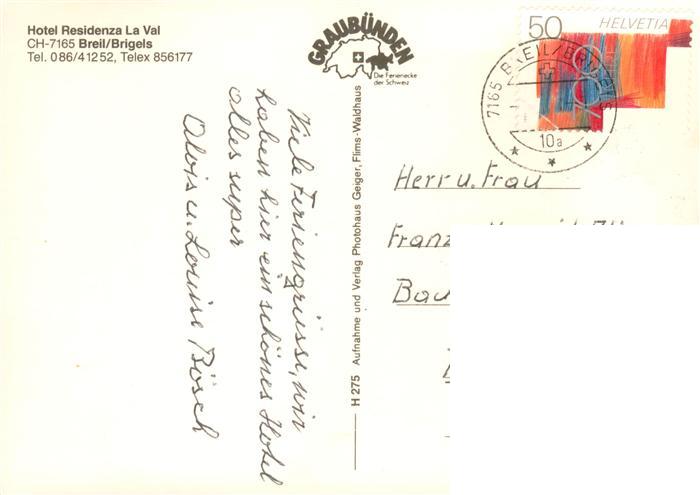 Hotel Residenza La Val
CH-7165 Breil/Brigels
Tel. 086/41252, Telex 856177
GRAUBÜNDEN
Die Ferienecke
der Schweiz
50 HELVETIA
7165 BREIL/BRIGELS
10a
Viele Feriengrüsse, wir
haben hier ein schönes Hotel
alles super
Alois u. Louise Bösch
H 275 Aufnahme und Verlag Photohaus Geiger, Flims-Waldhaus
Herr u. Frau
Franz
Bau